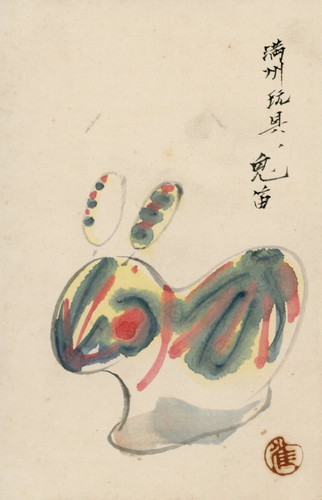 満州玩具、兎笛